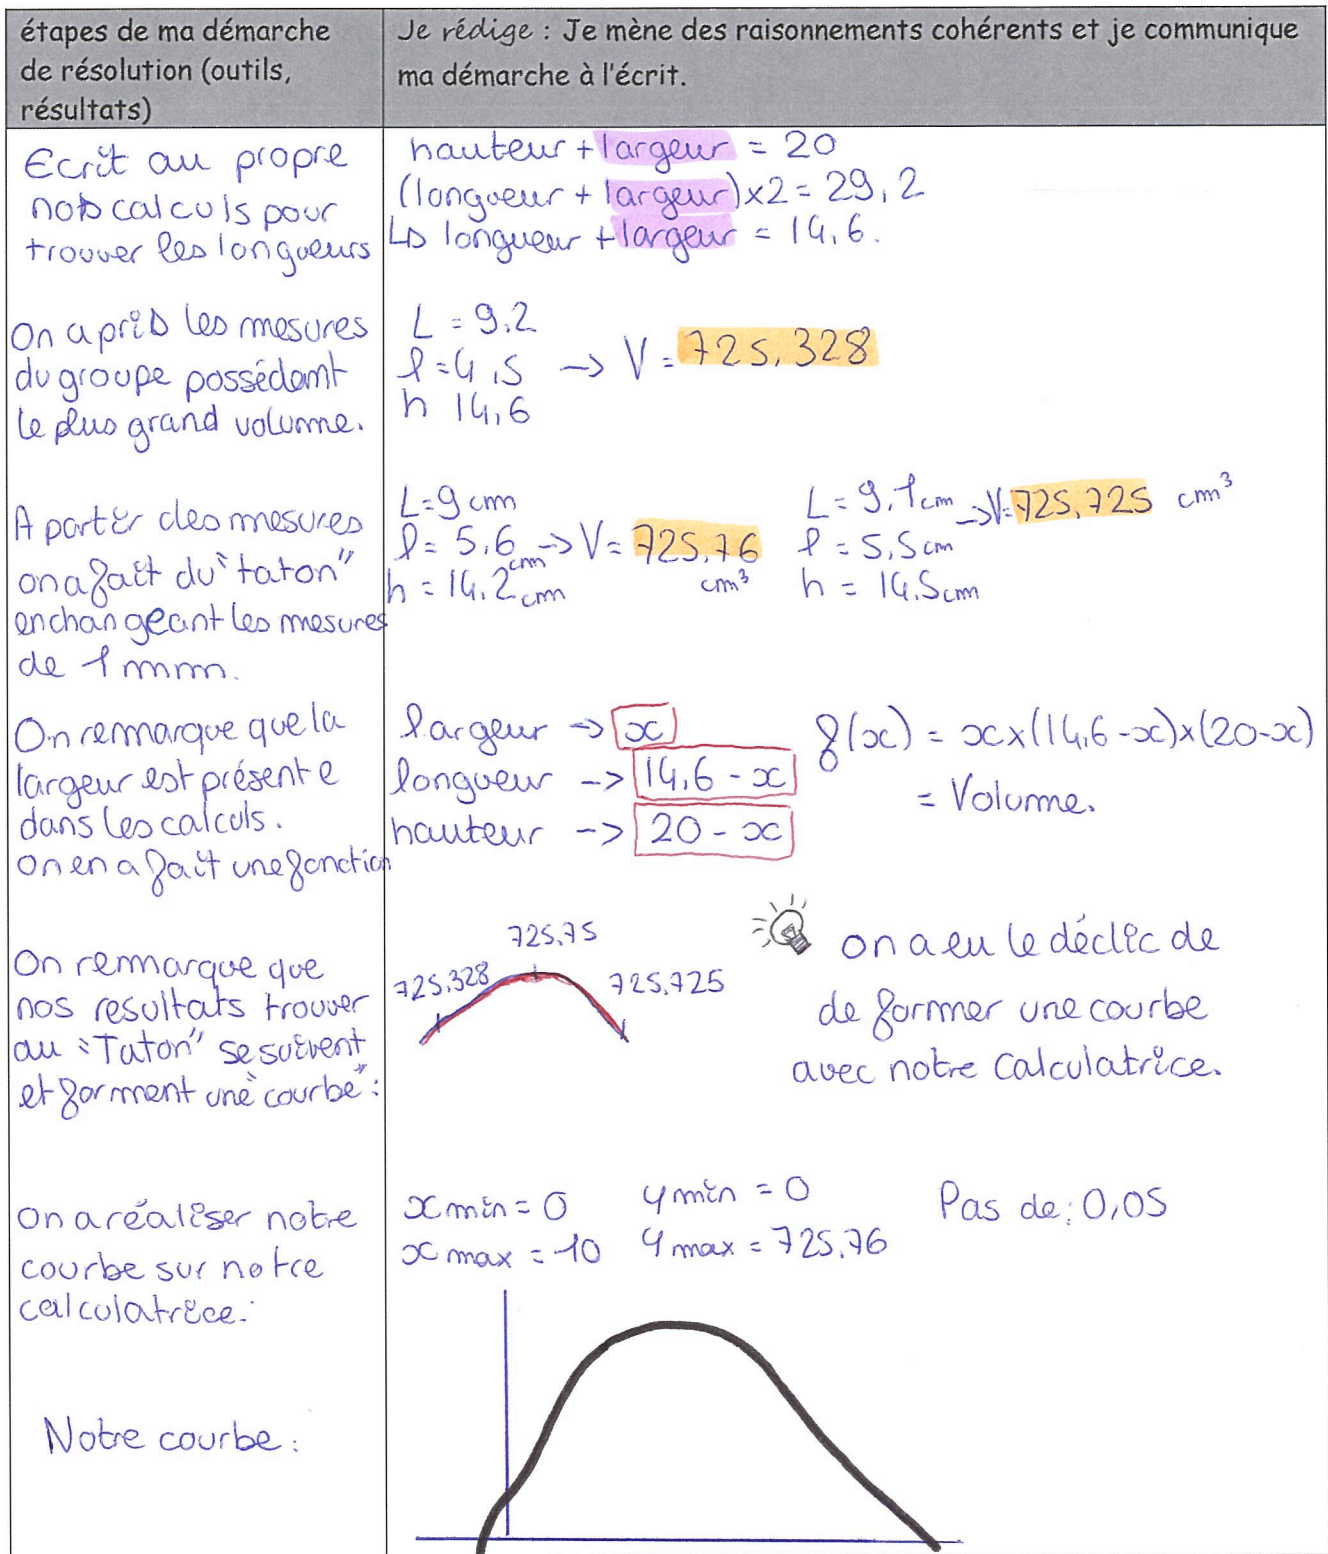 étapes de ma démarche
de résolution (outils,
résultats)
Je rédige : Je mène des raisonnements cohérents et je communique
ma démarche à l'écrit.
Ecrit au propre
nos calculs pour
trouver les longueurs
hauteur + largeur = 20
(longueur + largeur)x2 = 29,2
↳ longueur + largeur = 14,6.
On a pris les mesures
du groupe possédant
le plus grand volume.
L = 9,2
l = 4,5 → V = 725,328
h 14,6
A partir des mesures
on a fait du "taton"
en changeant les mesures
de 1 mm.
L = 9 cm
l = 5,6 cm → V = 725,76 cm³
h = 14,2 cm
L = 9,1 cm → V = 725,725 cm³
l = 5,5 cm
h = 14,5 cm
On remarque que la
largeur est présente
dans les calculs.
on en a fait une fonction
largeur → x
longueur → 14,6 - x
hauteur → 20 - x
f(x) = x x (14,6 - x) x (20 - x)
= Volume.
On remarque que
nos resultats trouver
au "Taton" se suivent
et forment une "courbe" :
725,75
725,328
725,725
on a eu le déclic de
de former une courbe
avec notre calculatrice.
on a réaliser notre
courbe sur notre
calculatrice.
x min = 0 y min = 0 Pas de : 0,05
x max = 10 y max = 725,76
Notre courbe :